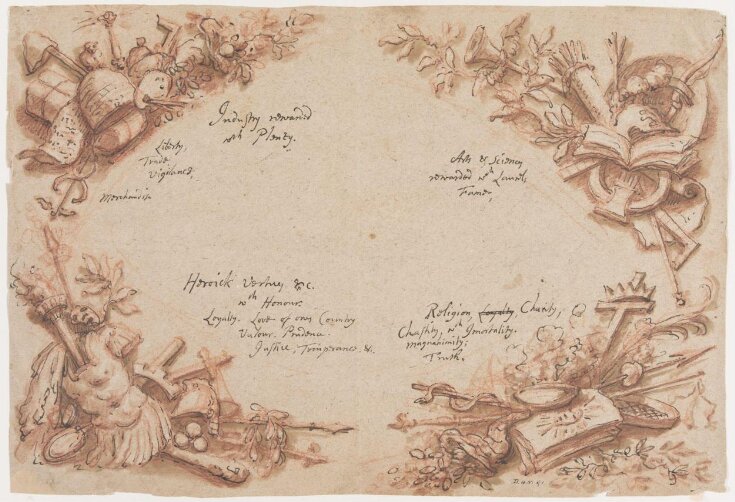 Industry reward
wth Plenty.
Liberty,
Trade
Vigilance,
Merchandise
Arts & Sciences
rewarded wth Laurel,
Fame,
Heroick Vertues &c.
wth Honour.
Loyalty. Love of ones Country
Valour. Prudence
Justice, Temperance, &c.
Religion Loyalty Charity,
Chastity, wth Imortality.
magnanimity.
Truth.